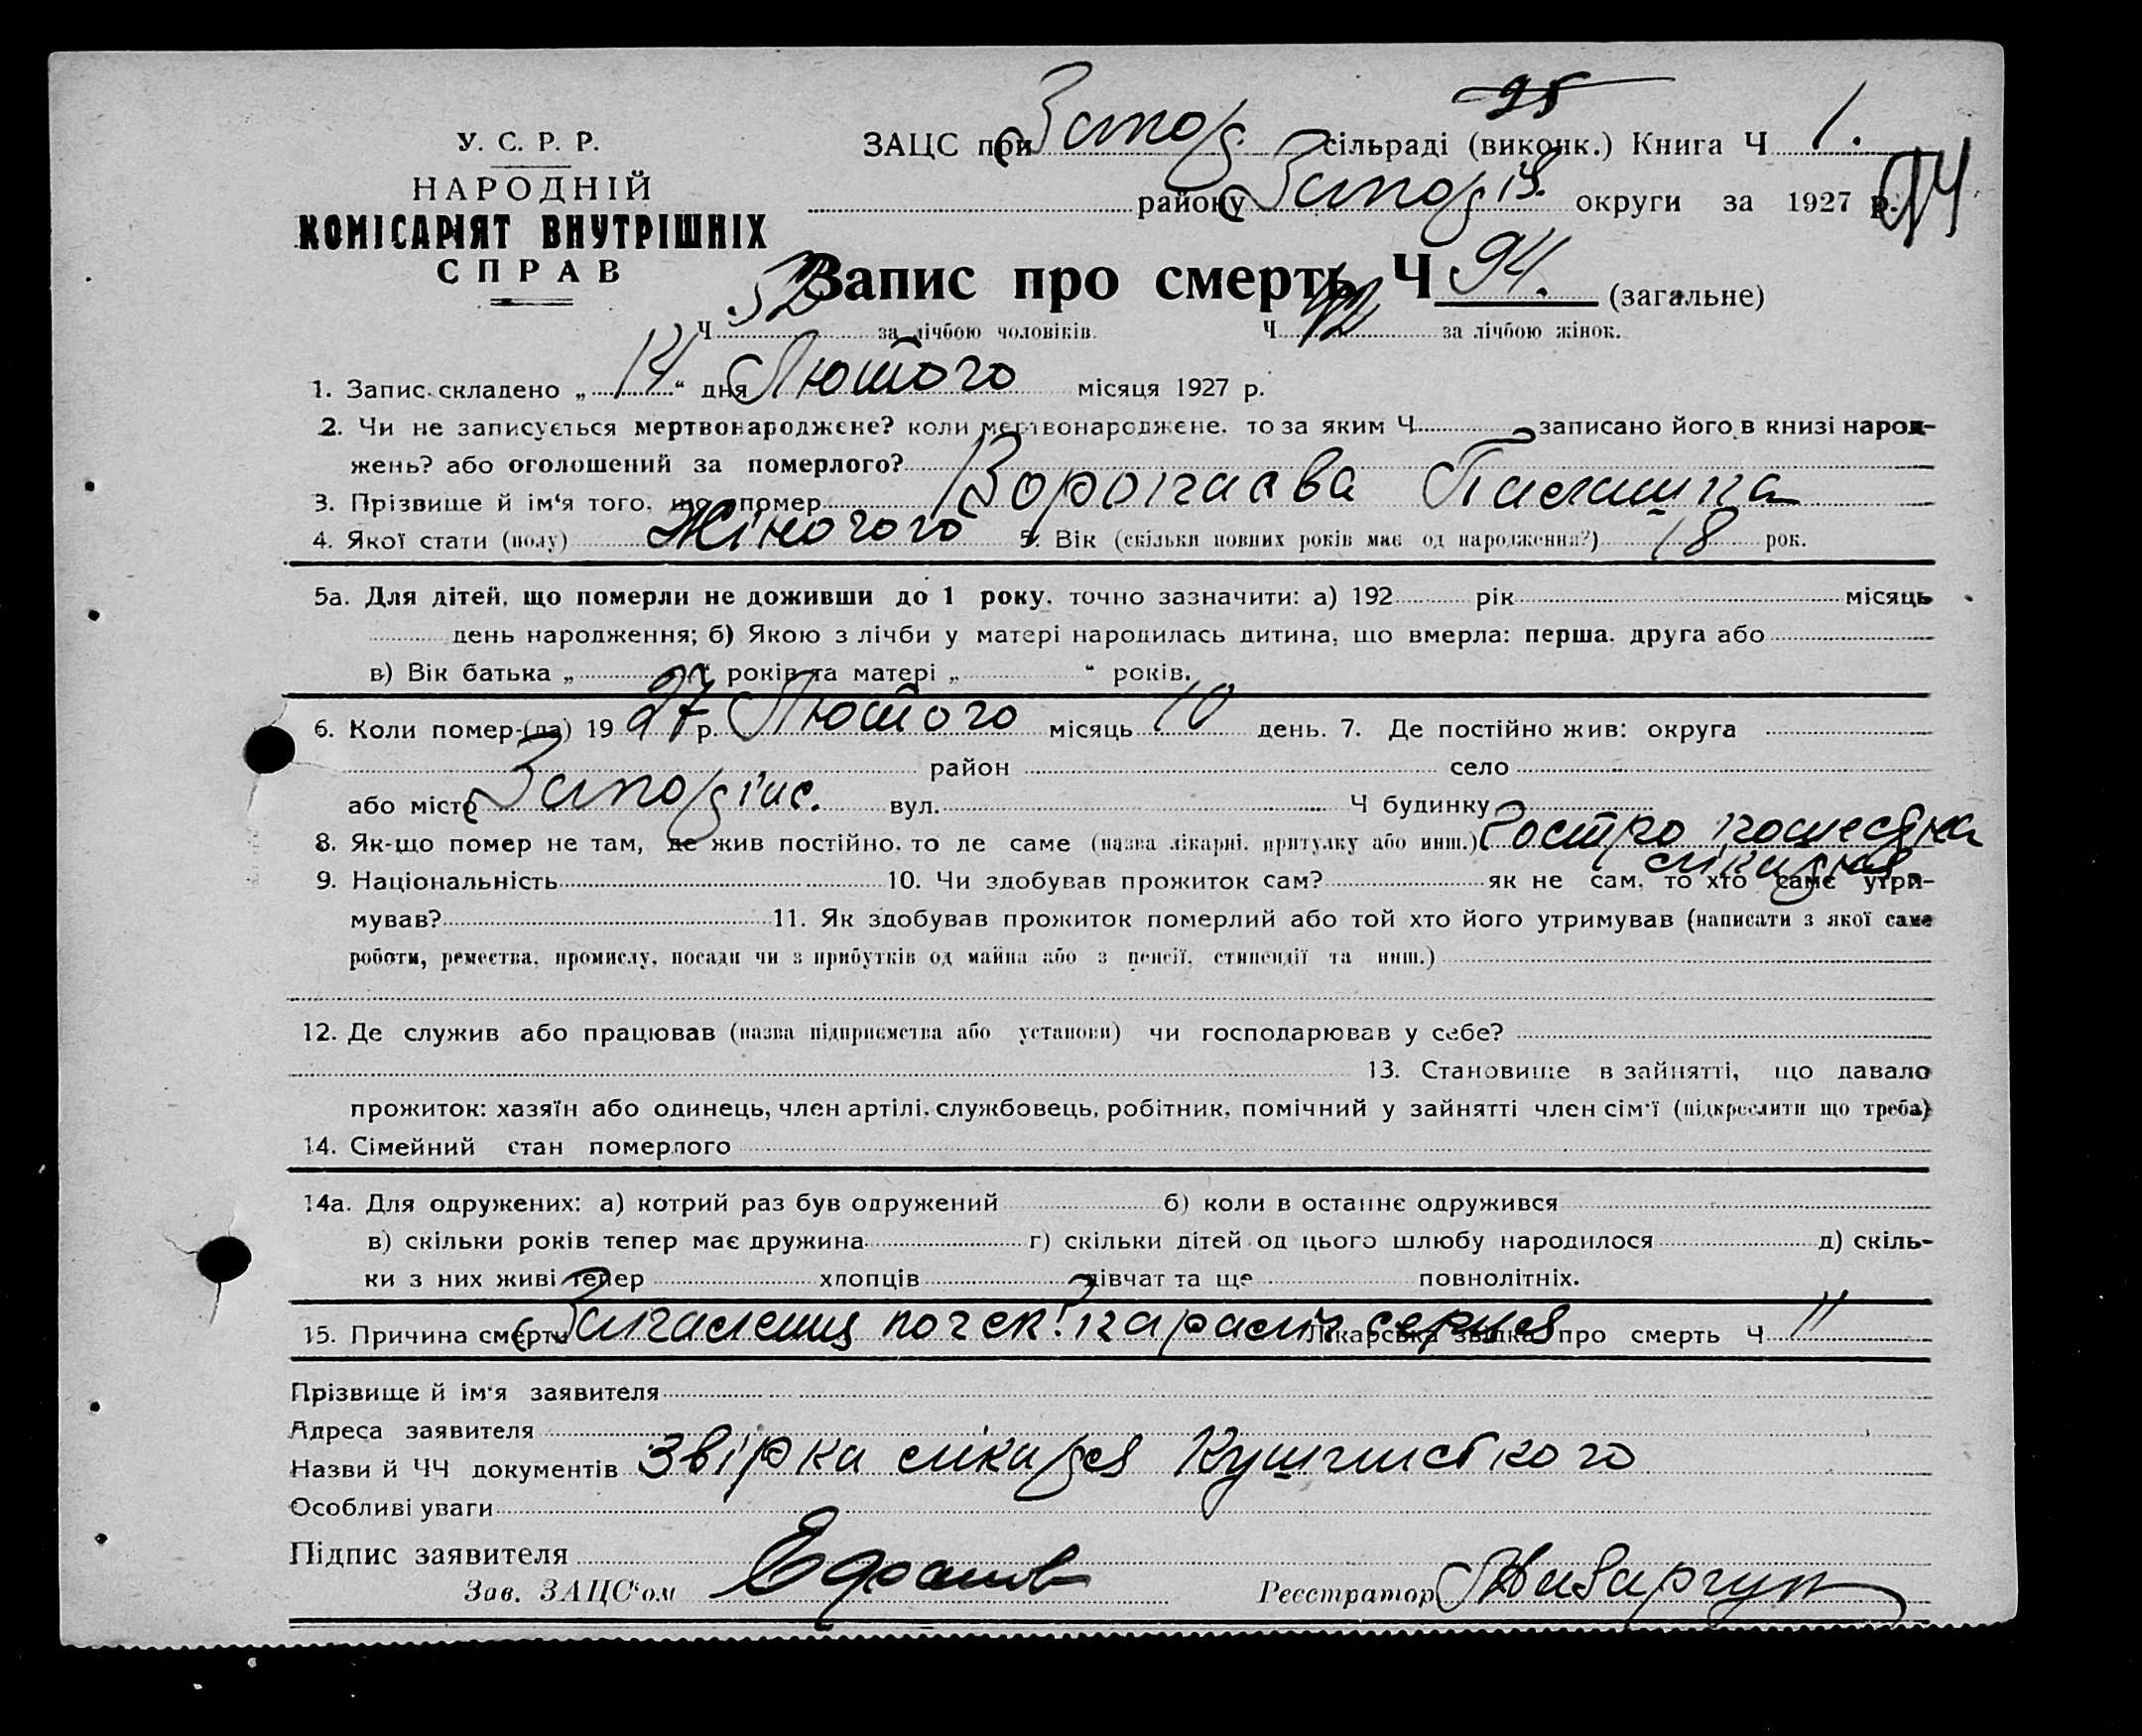 95
У. С. Р. Р.
НАРОДНІЙ
КОМІСАРІЯТ ВНУТРІШНІХ
СПРАВ
ЗАЦС при Запор. сільраді (виконк.) Книга Ч 1.
району Запоріз. округи за 1927 р. 94
Запис про смерть Ч 94. (загальне)
Ч 52 за лічбою чоловіків. Ч 42 за лічбою жінок.
1. Запис складено „ 14 “ дня Лютого місяця 1927 р.
2. Чи не записується мертвонароджене? коли мертвонароджене, то за яким Ч записано його в книзі народ-
жень? або оголошений за померлого?
3. Прізвище й ім‘я того, що помер
4. Якої стати (полу) Жіночого 5. Вік (скільки повних років має од народження?) 18 рок.
5а. Для дітей, що померли не доживши до 1 року, точно зазначити: а) 192 рік місяць
день народження; б) Якою з лічби у матері народилась дитина, що вмерла: перша, друга або
в) Вік батька „ “ років та матері „ “ років.
6. Коли помер-(ла) 1927 р. Лютого місяць 10 день. 7. Де постійно жив: округа
район село
або місто вул. Ч будинку
8. Як-що помер не там, де жив постійно, то де саме (назва лікарні, притулку або инш.)
9. Національність 10. Чи здобував прожиток сам? як не сам, то хто саме утри-
мував? 11. Як здобував прожиток померлий або той хто його утримував (написати з якої саме
роботи, ремества, промислу, посади чи з прибутків од майна або з пенсії, стипендії та инш.)
12. Де служив або працював (назва підприємства або установи) чи господарював у себе?
13. Становище в зайнятті, що давало
прожиток: хазяїн або одинець, член артілі, службовець, робітник, помічний у зайнятті член сім‘ї (підкреслити що треба)
14. Сімейний стан померлого
14а. Для одружених: а) котрий раз був одружений б) коли в останнє одружився
в) скільки років тепер має дружина г) скільки дітей од цього шлюбу народилося д) скіль-
ки з них живі тепер хлопців дівчат та ще повнолітніх.
15. Причина смерти почек. серця Лікарська звідка про смерть Ч 11
Прізвище й ім‘я заявителя
Адреса заявителя
Назви й ЧЧ документів Звірка лікаря
Особливі уваги
Підпис заявителя
Зав. ЗАЦС‘ом Реєстратор